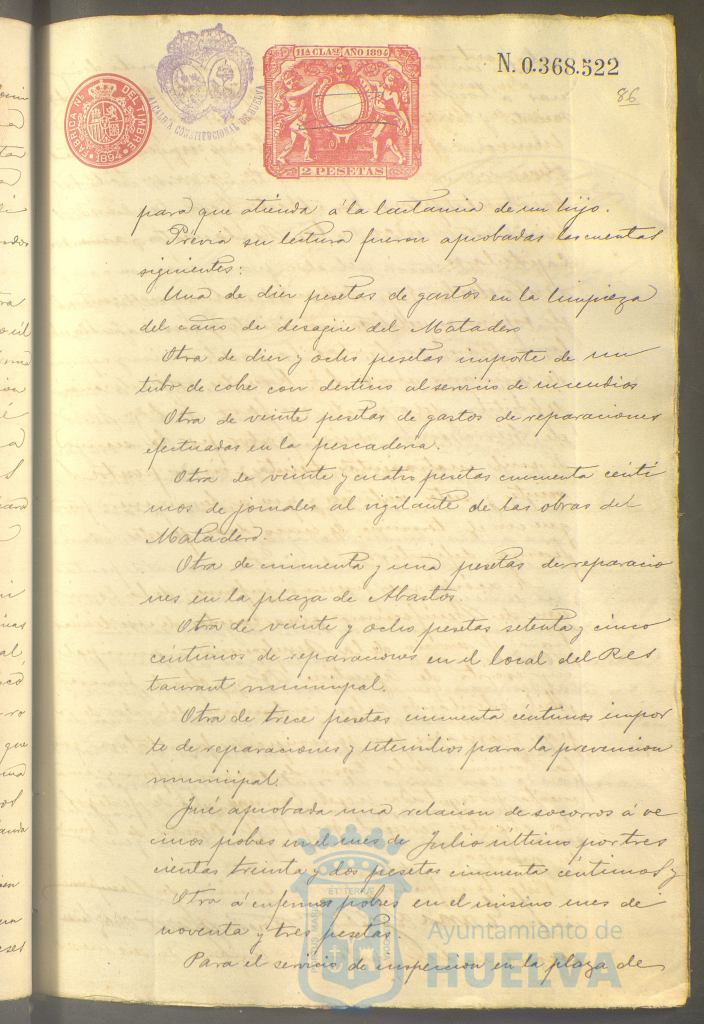 FABRICA NL. DEL TIMBRE
1894
ALCALDIA CONSTITUCIONAL DE HUELVA
11ª CLASE AÑO 1894
2 PESETAS
N. 0.368.522
86
para que atienda á la lactancia de un hijo.
Prévia su lectura fueron aprobadas las cuentas
siguientes:
Una de diez pesetas de gastos en la limpieza
del caño de desagüe del Matadero
Otra de diez y ocho pesetas importe de un
tubo de cobre con destino al servicio de incendios
Otra de veinte pesetas de gastos de reparaciones
efectuadas en la pescaderia.
Otra de veinte y cuatro pesetas cincuenta centi
mos de jornales al vigilante de las obras del
Matadero.
Otra de cincuenta y una pesetas de reparacio
nes en la plaza de Abastos.
Otra de veinte y ocho pesetas setenta y cinco
céntimos de reparaciones en el local del Res
taurant municipal.
Otra de trece pesetas cincuenta céntimos impor
te de reparaciones y utensilios para la prevencion
municipal.
Fué aprobada una relacion de socorros á ve
cinos pobres en el mes de Julio último por tres
cientas treinta y dos pesetas cincuenta céntimos y
Otra á enfermos pobres en el mismo mes de
noventa y tres pesetas
Para el servicio de inspeccion en la plaza de
Ayuntamiento de
HUELVA